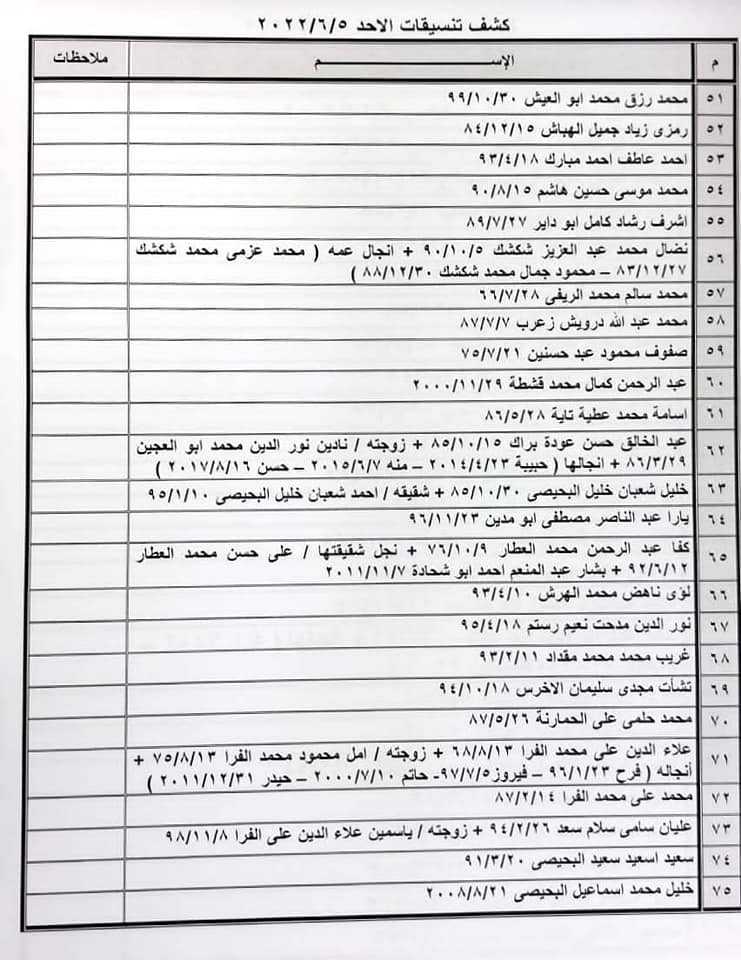 كشف تنسيقات الاحد ٢٠٢٢/٦/٥
م الإســـم ملاحظات
٥١ محمد رزق محمد ابو العيش ٩٩/١٠/٣٠
٥٢ رمزى زياد جميل الهباش ٨٤/١٢/١٥
٥٣ احمد عاطف احمد مبارك ٩٣/٤/١٨
٥٤ محمد موسى حسين هاشم ٩٠/٨/١٥
٥٥ اشرف رشاد كامل ابو داير ٨٩/٧/٢٧
٥٦ نضال محمد عبد العزيز شكشك ٩٠/١٠/٥ + انجال عمه ( محمد عزمى محمد شكشك
٨٣/١٢/٢٧ – محمود جمال محمد شكشك ٨٨/١٢/٣٠ )
٥٧ محمد سالم محمد الريفى ٦٦/٧/٢٨
٥٨ محمد عبد الله درويش زعرب ٨٧/٧/٧
٥٩ صفوف محمود عبد حسنين ٧٥/٧/٢١
٦٠ عبد الرحمن كمال محمد قشطة ٢٠٠٠/١١/٢٩
٦١ اسامة محمد عطية تاية ٨٦/٥/٢٨
٦٢ عبد الخالق حسن عودة براك ٨٥/١٠/١٥ + زوجته / نادين نور الدين محمد ابو العجين
٨٦/٣/٢٩ + انجالها ( حبيبة ٢٠١٤/٤/٢٣ – منه ٢٠١٥/٦/٧ – حسن ٢٠١٧/٨/١٦ )
٦٣ خليل شعبان خليل البحيصى ٨٥/١٠/٣٠ + شقيقه / احمد شعبان خليل البحيصى ٩٥/١/١٠
٦٤ يارا عبد الناصر مصطفى ابو مدين ٩٦/١١/٢٣
٦٥ كفا عبد الرحمن محمد العطار ٧٦/١٠/٩ + نجل شقيقتها / على حسن محمد العطار
٩٢/٦/١٢ + بشار عبد المنعم احمد ابو شحادة ٢٠١١/١١/٧
٦٦ لؤى ناهض محمد الهرش ٩٣/٤/١٠
٦٧ نور الدين مدحت نعيم رستم ٩٥/٤/١٨
٦٨ غريب محمد محمد مقداد ٩٣/٢/١١
٦٩ نشأت مجدى سليمان الاخرس ٩٤/١٠/١٨
٧٠ محمد حلمى على الحمارنة ٨٧/٥/٢٦
٧١ علاء الدين على محمد الفرا ٦٨/٨/١٣ + زوجته / امل محمود محمد الفرا ٧٥/٨/١٣ +
أنجاله ( فرح ٩٦/١/٢٣ – فيروز ٩٧/٧/٥- حاتم ٢٠٠٠/٧/١٠ – حيدر ٢٠١١/١٢/٣١ )
٧٢ محمد على محمد الفرا ٨٧/٢/١٤
٧٣ عليان سامى سلام سعد ٩٤/٢/٢٦ + زوجته / ياسمين علاء الدين على الفرا ٩٨/١١/٨
٧٤ سعيد اسعيد سعيد البحيصى ٩١/٣/٢٠
٧٥ خليل محمد اسماعيل البحيصى ٢٠٠٨/٨/٢١